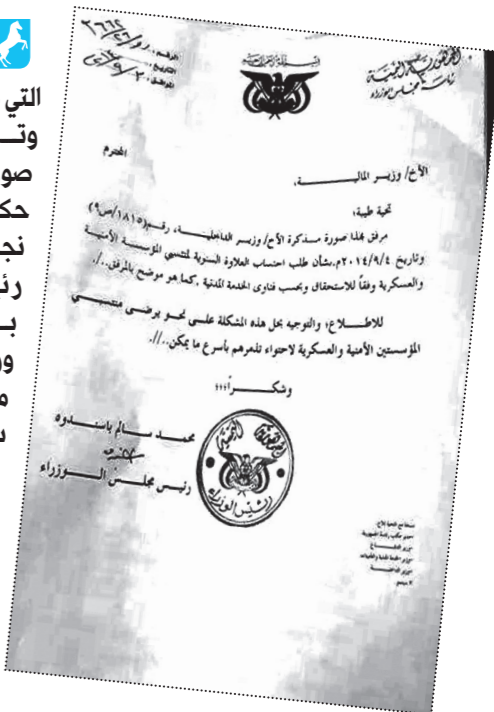 الجمهورية اليمنية
رئاسة مجلس الوزراء
بسم الله الرحمن الرحيم
الرقم:
التاريخ:
الأخ/ وزير المالية
المحترم
تحية طيبة؛
مرفق بهذا صورة مذكرة الأخ/ وزير الداخلية، رقم(١٨١٥/ص٩)
وتاريخ ٢٠١٤/٩/٤م.بشأن طلب احتساب العلاوة السنوية لمنتسبي المؤسسة الأمنية
والعسكرية وفقاً للاستحقاق وبحسب فتاوى الخدمة المدنية .كما هو موضح بالمرفق..//.
للاطلاع؛ والتوجيه بحل هذه المشكلة على نحو يرضى منتسبي
المؤسستين الأمنية والعسكرية لاحتواء تذمرهم بأسرع ما يمكن..//.
وشكراً؛؛؛
محمد سالم باسندوه
رئيس مجلس الوزراء
رئيس الوزراء
التي
وتـ
صو
حك
نج
رئ
بـ
ور